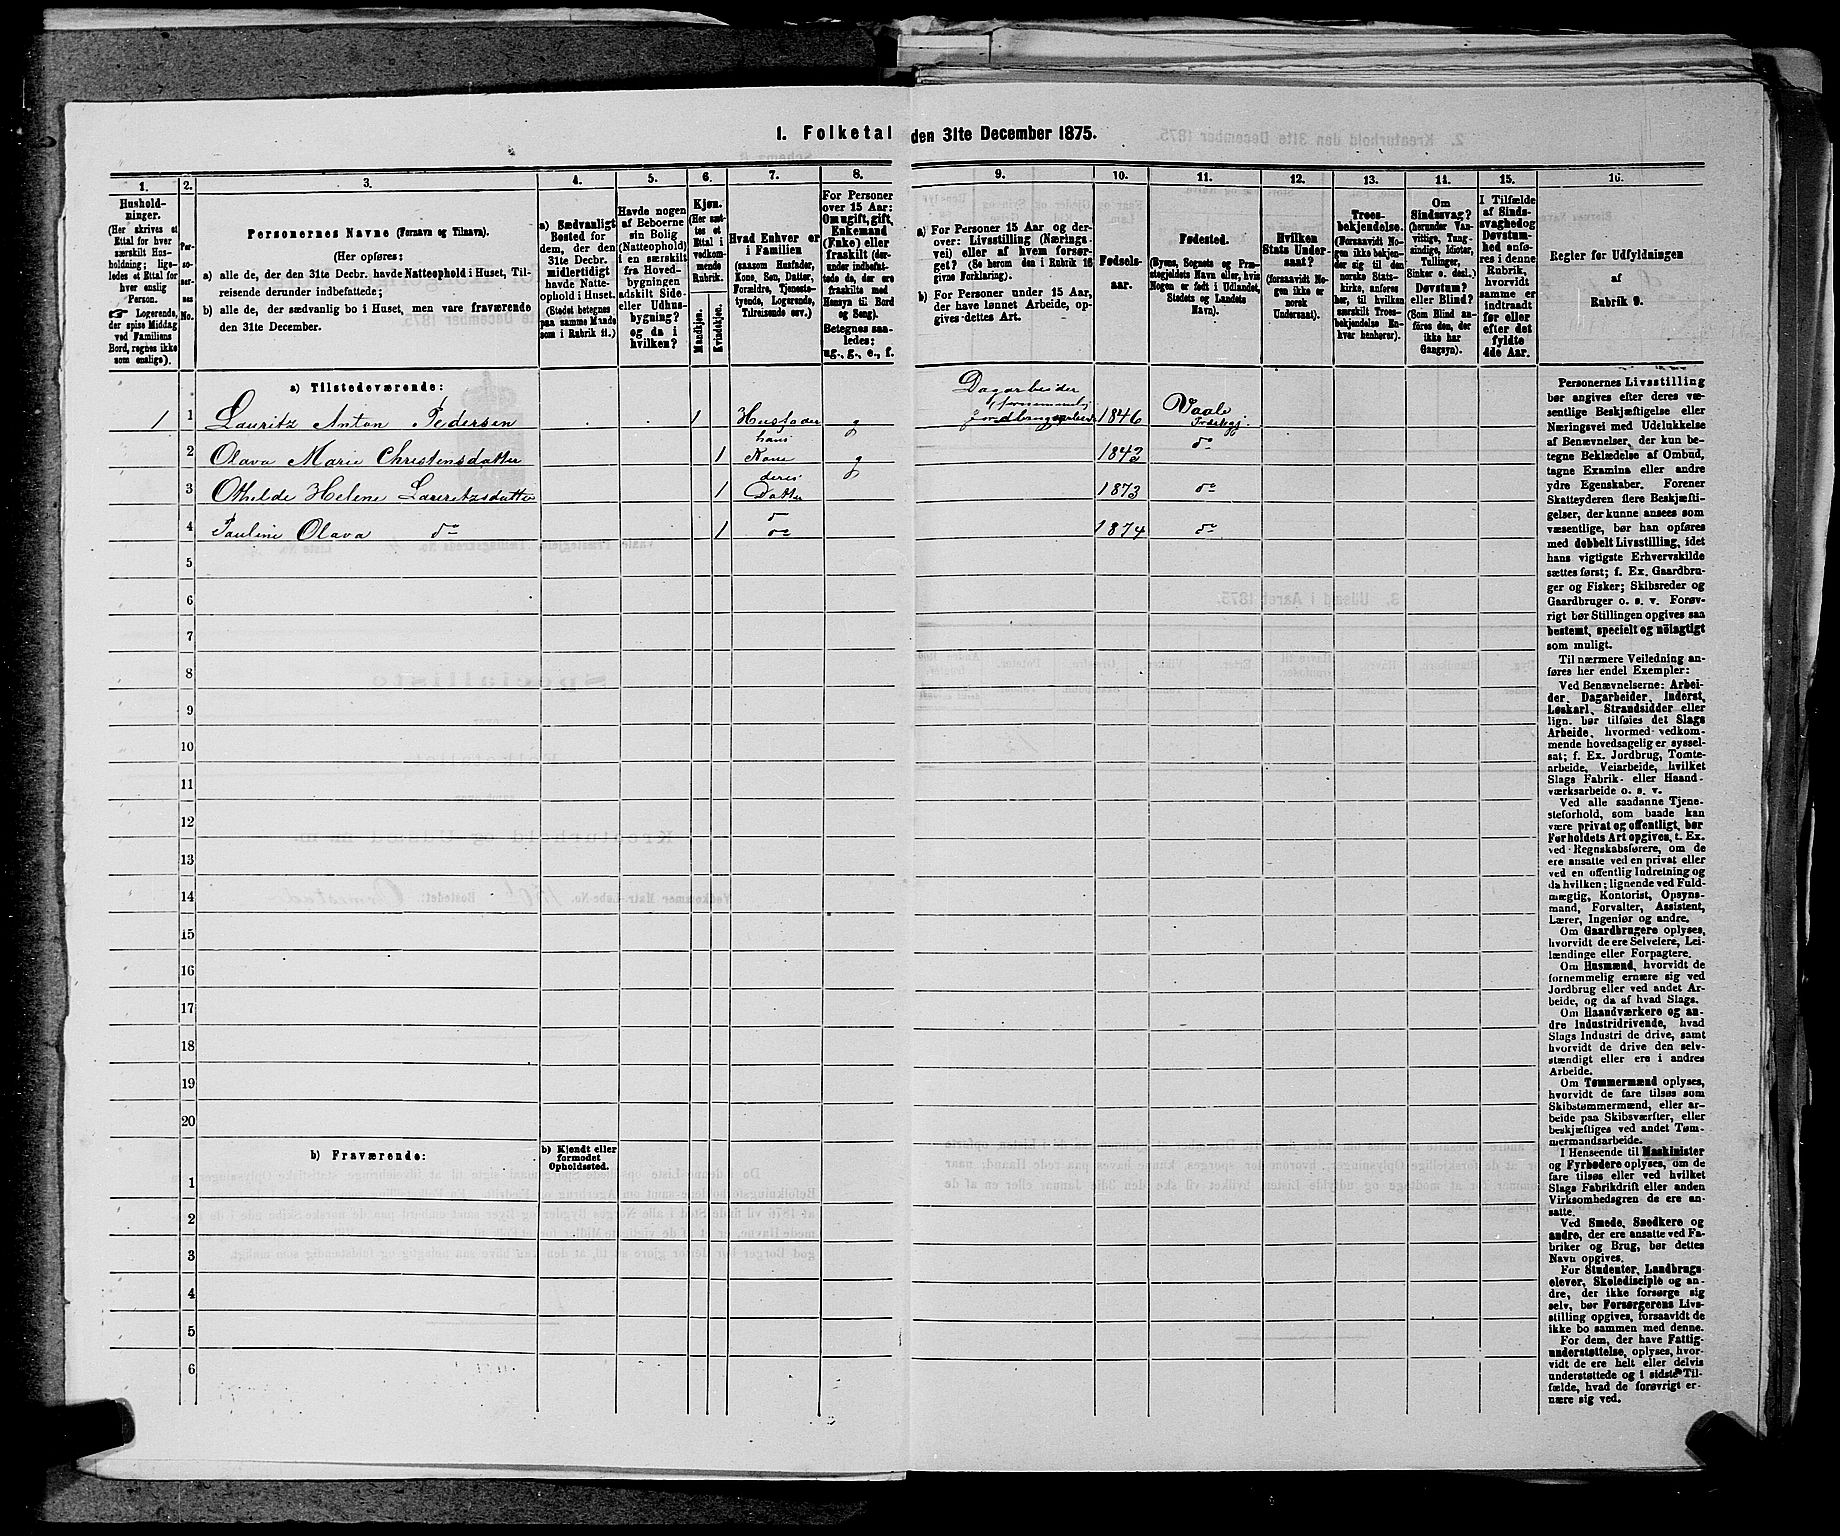 1. Folketal den 31te December 1875.
1.
Husholdninger.
(Her skrives et Ettal for hver særskilt Husholdning; ligeledes et Ettal for hver enslig Person.
☞ Logerende, der spise Middag ved Familiens Bord, regnes ikke som enslige).
2.
Personernes No.
3.
Personernes Navne (Fornavn og Tilnavn).
(Her opføres:
a) alle de, der den 31te Decbr. havde Natteophold i Huset, Tilreisende derunder indbefattede;
b) alle de, der sædvanlig bo i Huset, men vare fraværende den 31te December.
4.
a) Sædvanligt Bosted for dem, der den 31te Decbr. midlertidigt havde Natteophold i Huset. (Stedet betegnes paa samme Maade som i Rubrik 11.)
5.
Havde nogen af Beboerne sin Bolig (Natteophold) i en særskilt fra Hovedbygningen adskilt Side- eller Udhusbygning? og da i hvilken?
6.
Kjøn.
(Her sættes et Ettal i vedkommende Rubrik.
Mandkjøn.
Kvindekjøn.
7.
Hvad Enhver er i Familien
(saasom Husfader, Kone, Søn, Datter, Forældre, Tjenestetyende, Logerende, Tilreisende osv.)
8.
For Personer over 15 Aar: Om ugift, gift, Enkemand (Enke) eller fraskilt (derunder indbefattede da, der ere fraskilte med Hensyn til Bord og Seng).
Betegnes saaledes:
ug., g., e., f.
9.
a) For Personer 15 Aar og derover: Livsstilling (Næringsvei) eller af hvem forsørget? (Se herom den i Rubrik 16 givne Forklaring).
b) For Personer under 15 Aar, der have lønnet Arbeide, opgives dettes Art.
10.
Fødselsaar.
11.
Fødested.
(Byens, Sognets og Præstegjeldets Navn eller, hvis Nogen er født i Udlandet, Stedets og Landets Navn).
12.
Hvilken Stats Undersaat?
(forsaavidt Nogen ikke er norsk Undersaat).
13.
Troesbekjendelse.
(Forsaavidt Nogen ikke bekjender sig til den norske Statskirke, anføres her, til hvilken særskilt Troesbekjendelse Enhver henhører).
14.
Om Sindssvag? (herunder Vanvittige, Tungsindige, Idioter, Tullinger, Sinker o. desl.) Døvstum? eller Blind? (Som Blind anføres den, der ikke har Gangsyn).
15.
I Tilfælde af Sindssvaghed og Døvstumhed anføres i denne Rubrik, hvorvidt samme er indtraadt før eller efter det fyldte 4de Aar.
16.
Regler for Udfyldningen
af
Rubrik 9.
a) Tilstedeværende:
1 1 Lauritz Anton Pedersen 1 Husfader g Dagarbeider fornemmelig Jordbrugsarbeide 1846 Vaale Prstgj.
2 Olava Marie Christensdatter 1 hans Kone g 1843 do
3 Othelde Helene Lauritzsdatter 1 deres Datter 1873 do
4 Pauline Olava do 1 do 1874 do
5
6
7
8
9
10
11
12
13
14
15
16
17
18
19
20
b) Fraværende:
b) Kjendt eller formodet Opholdssted.
1
2
3
4
5
6
Personernes Livsstilling
bør angives efter deres væ-
sentlige Beskjæftigelse eller
Næringsvei med Udelukkelse
af Benævnelser, der kun be-
tegne Beklædelse af Ombud,
tagne Examina eller andre
ydre Egenskaber. Forener
Skatteyderen flere Beskjæfti-
gelser, der kunne ansees som
væsentlige, bør han opføres
med dobbelt Livsstilling, idet
hans vigtigste Erhvervskilde
sættes først; f. Ex. Gaardbru-
ger og Fisker; Skibsreder og
Gaardbruger o. s. v. Forøv-
rigt bør Stillingen opgives saa
bestemt, specielt og nöiagtigt
som muligt.
Til nærmere Veiledning an-
føres her endel Exempler:
Ved Benævnelserne: Arbei-
der, Dagarbeider, Inderst,
Løskarl, Strandsidder eller
lign. bør tilføies det Slags
Arbeide, hvormed vedkom-
mende hovedsagelig er syssel-
sat; f. Ex. Jordbrug, Tomte-
arbeide, Veiarbeide, hvilket
Slags Fabrik- eller Haand-
værksarbeide o. s. v.
Ved alle saadanne Tjene-
steforhold, som baade kan
være privat og offentligt, bør
Forholdets Art opgives, t. Ex.
ved Regnskabsførere, om de
ere ansatte ved en privat eller
ved en offentlig Indretning og
da hvilken; lignende ved Fuld-
mægtig, Kontorist, Opsyns-
mand, Forvalter, Assistent,
Lærer, Ingeniør og andre.
Om Gaardbrugere oplyses,
hvorvidt de ere Selveiere, Lei-
lændinge eller Forpagtere.
Om Husmænd, hvorvidt de
fornemmelig ernære sig ved
Jordbrug eller ved andet Ar-
beide, og da af hvad Slags.
Om Haandværkere og an-
dre Industridrivende, hvad
Slags Industri de drive, samt
hvorvidt de drive den selv-
stændigt eller ere i andres
Arbeide.
Om Tømmermænd oplyses,
hvorvidt de fare tilsøs som
Skibstømmermænd, eller ar-
beide paa Skibsværfter, eller
beskjæftiges ved andet Tøm-
mermandsarbeide.
I Henseende til Maskinister
og Fyrbødere oplyses, om de
fare tilsøs eller ved hvilket
Slags Fabrikdrift eller anden
Virksomhedsgren de ere an-
satte.
Ved Smede, Snedkere og
andre, der ere ansatte ved Fa-
briker og Brug, bør dettes
Navn opgives.
For Studenter, Landbrugs-
elever, Skoledisciple og an-
dre, der ikke forsørge sig
selv, bør Forsørgerens Livs-
stilling opgives, forsaavidt de
ikke bo sammen med denne.
For dem, der have Fattig-
understøttelse, oplyses, hvor-
vidt de ere helt eller delvis
understøttede og i sidste Til-
fælde, hvad de forøvrigt er-
nære sig ved.